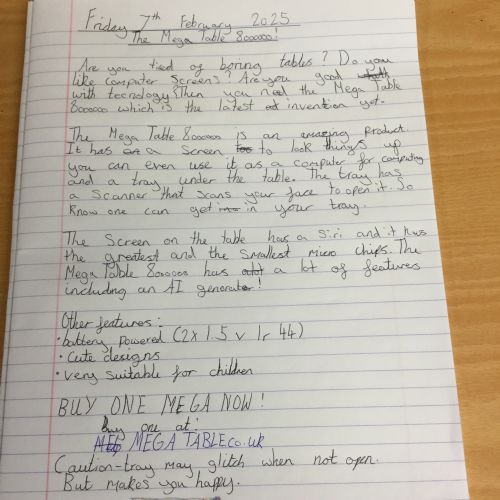 Friday 7th February 2025
The Mega Table 8000000!
Are you tired of boring tables? Do you
like computer screens? Are you good
with tecnology? Then you need the Mega Table
8000000 which is the latest invention yet.
The Mega Table 8000000 is an amazing product.
It has a screen to look things up
you can even use it as a computer for computing
and a tray under the table. The tray has
a scanner that scans your face to open it. So
know one can get in your tray.
The screen on the table has a Siri and it has
the greatest and the smallest micro chips. The
Mega Table 8000000 has a lot of features
including an AI generator!
Other features:
• battery powered (2x 1.5 v lr 44)
• Cute designs
• very suitable for children
BUY ONE MEGA NOW!
buy one at:
MEGA TABLE.co.uk
Caution-tray may glitch when not open.
But makes you happy.